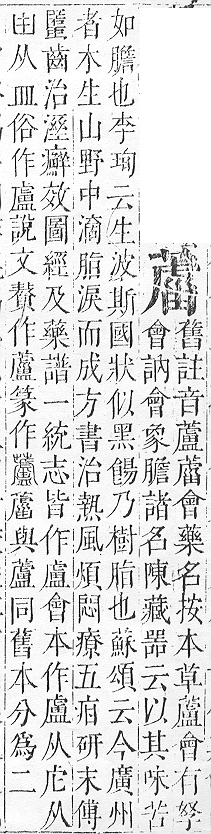 舊註音蘆蘆會藥名按本草蘆會有孥
會訥會象膽諸名陳藏噐云以其味苦
如膽也李珣云生波斯國狀似黑餳乃樹脂也蘇頌云今廣州
者木生山野中滴脂淚而成方書治熱風煩悶療五疳研末傅
䘌齒治溼癬效圖經及藥譜一統志皆作盧會本作盧从虍从
从皿俗作盧說文作蘆篆作與蘆同舊本分為二